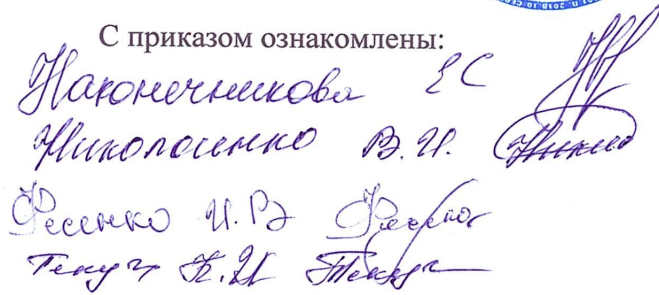 С приказом ознакомлены:
Наконечникова ЕС
Николаенко В.И.
Фесенко И.В
Текуч К.И